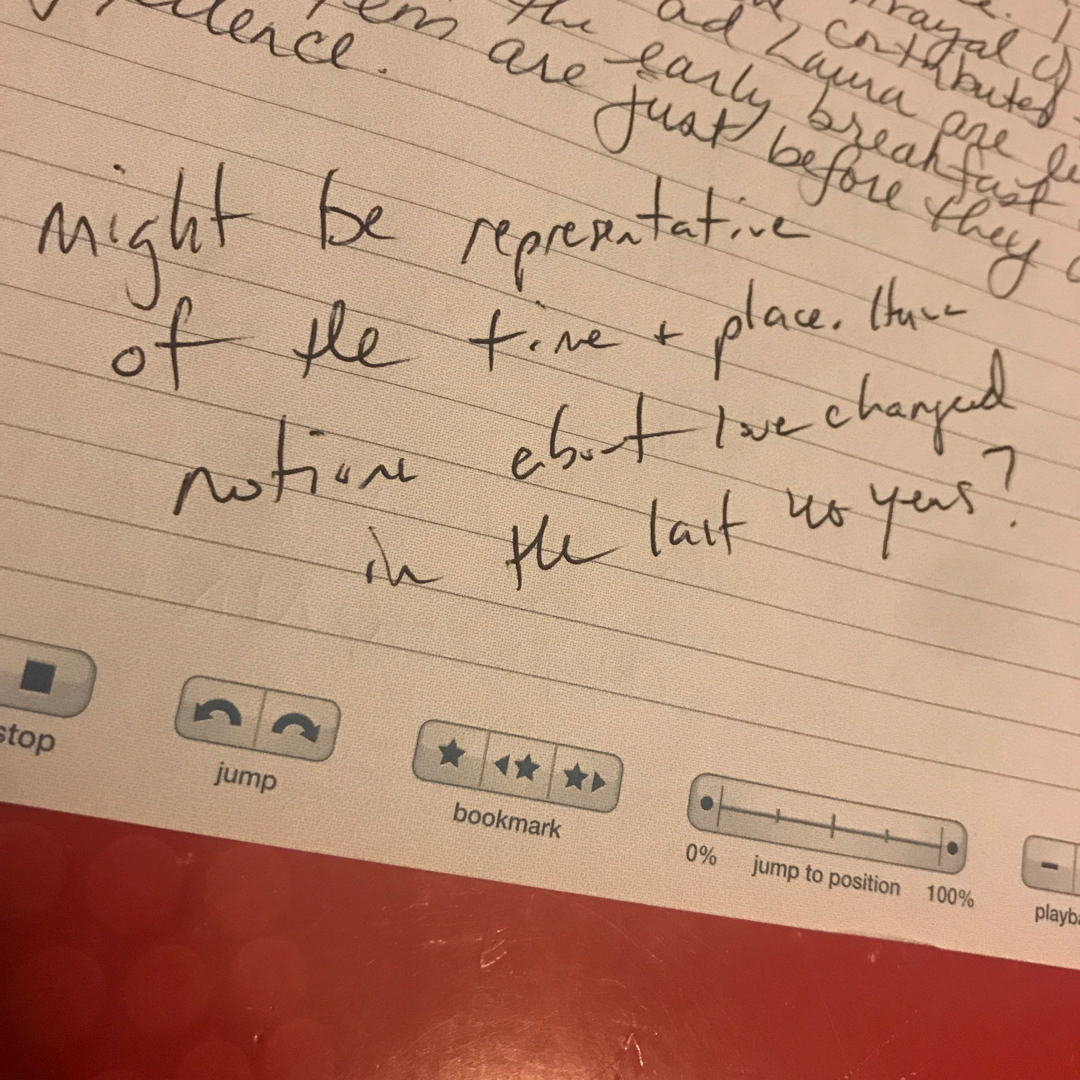 contributed
ad Laura are
the early breakfast
are just before they
might be representative
of the time + place. Have
notions about love changed
in the last 40 years?
stop
jump
bookmark
0% jump to position 100%